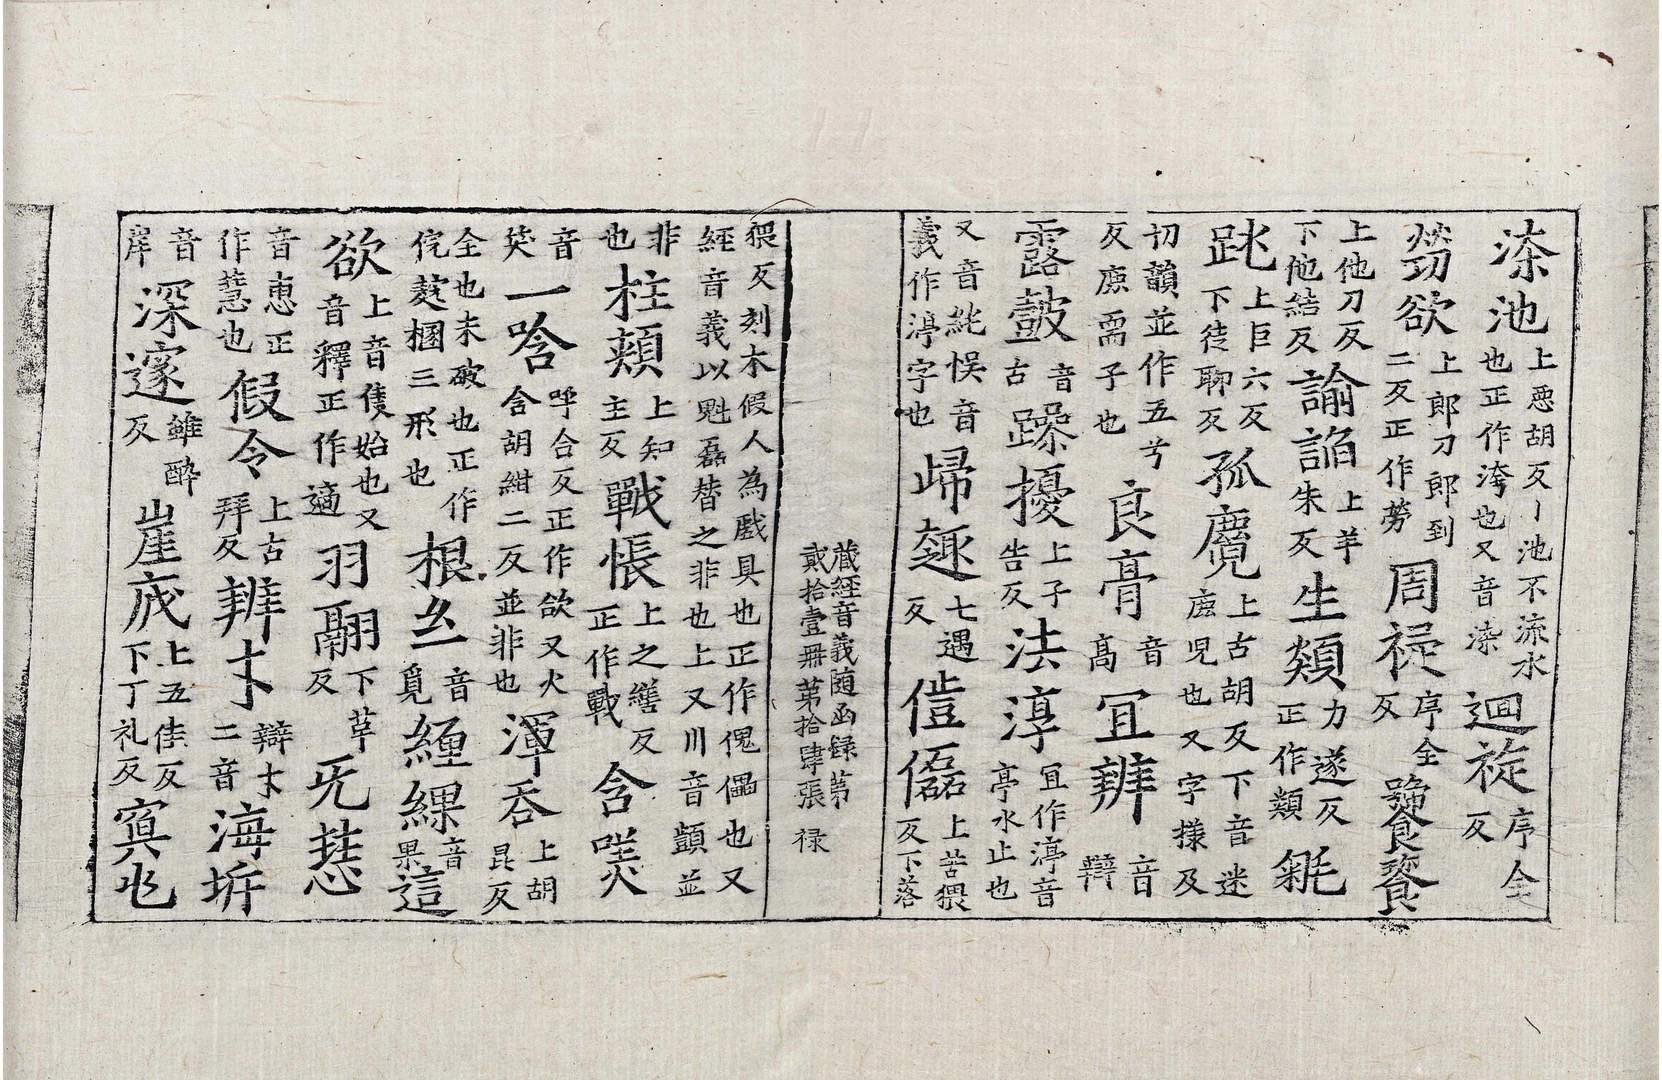 洿池上惡胡反丨池不流水也正作洿也又音染迴旋序全反
勞欲上郎刀郎到二反正作勞周旋序全反饕餮
上他刀反下他結反諭諂上羊朱反生類力遂反正作類毹
跳上巨六反下徒聊反孤麑上古胡反下音迷麑児也又字樣及
切韻並作五兮反鹿而子也良膏音高冝辨音辯
露鼓音古躁擾上子告反法淳冝作渟音亭水止也
又音純悮音義作渟字也歸趣七遇反傀儡上苦猥反下落
藏經音義随函録苐貳拾壹冊苐拾肆張 禄
猥反刻木假人為戲具也正作傀儡也又經音義以魁磊替之非也上又川音顫並
非也柱頰上知主反戰悵上之繕反正作戰含㗛
音笑一唅呼合反正作欱又火含胡紺二反並非也渾吞上胡昆反
全也未破也正作㑮㯻棞三形也根糸音覓纏緤音果這
欲上音隻始也又音釋正作適羽翮下革反旡慧
音恵正作慧也假令上古拜反辨才辯才二音海圻
音岸深邃雖醉反崖底上五佳反下丁礼反寘也